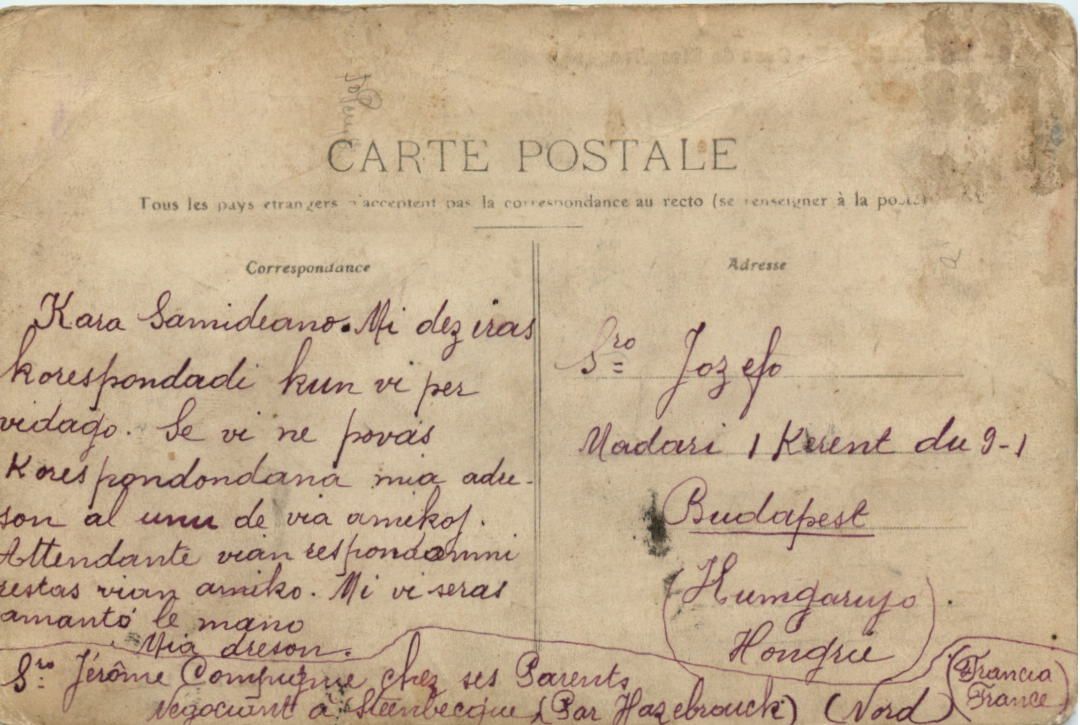 CARTE POSTALE
Tous les pays etrangers n'acceptent pas la correspondance au recto (se renseigner à la poste)
Correspondance
Kara Samideano. Mi deziras
korespondadi kun vi per
vidago. Se vi ne povas
Korespondondana mia adre-
son al unu de via amikoj.
Attendante vian respondon mi
restas vian amiko. Mi vi seras
amanto le mano
Mia dreson.
Sro Jérôme Compugnie chez ses Parents
Negociant a Steenbecque (Par Hazebrouck) (Nord)
(Francia
France)
Adresse
Sro Jozefo
Madari 1 Kerent du 9-1
Budapest
Humgarujo
Hongrie